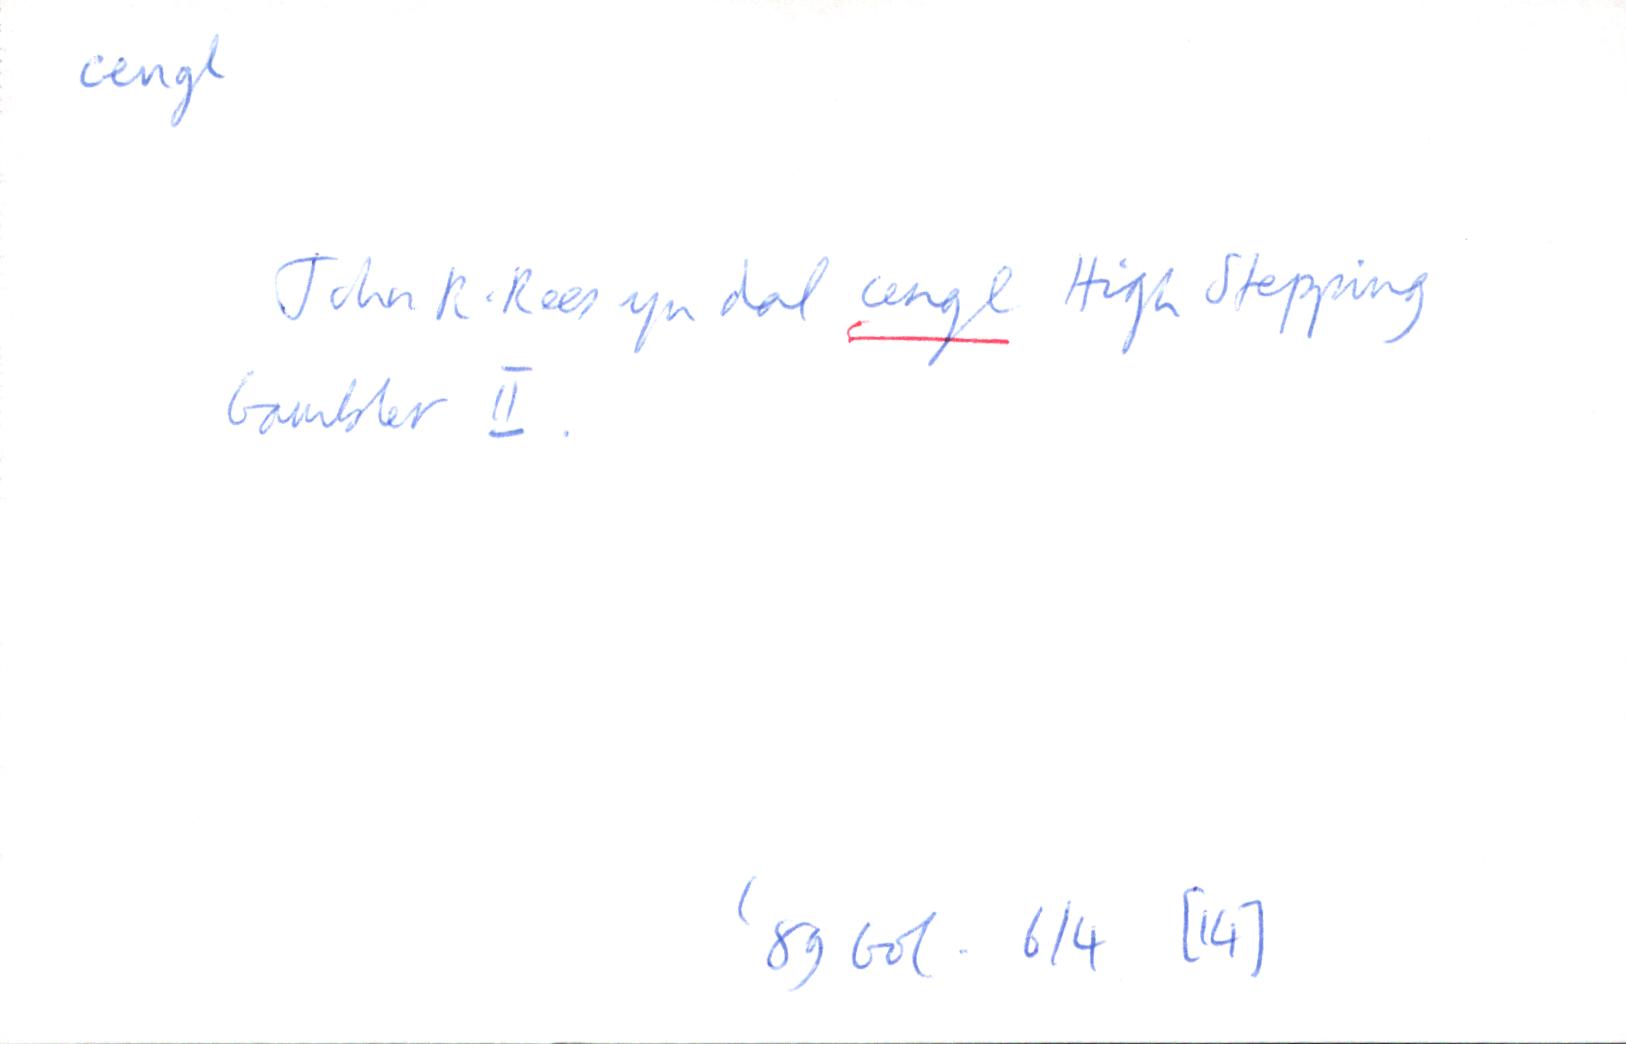 cengl
John R. Rees yn dal cengl High Stepping
Gambler II.
'89 Gol. 6/4 [14]